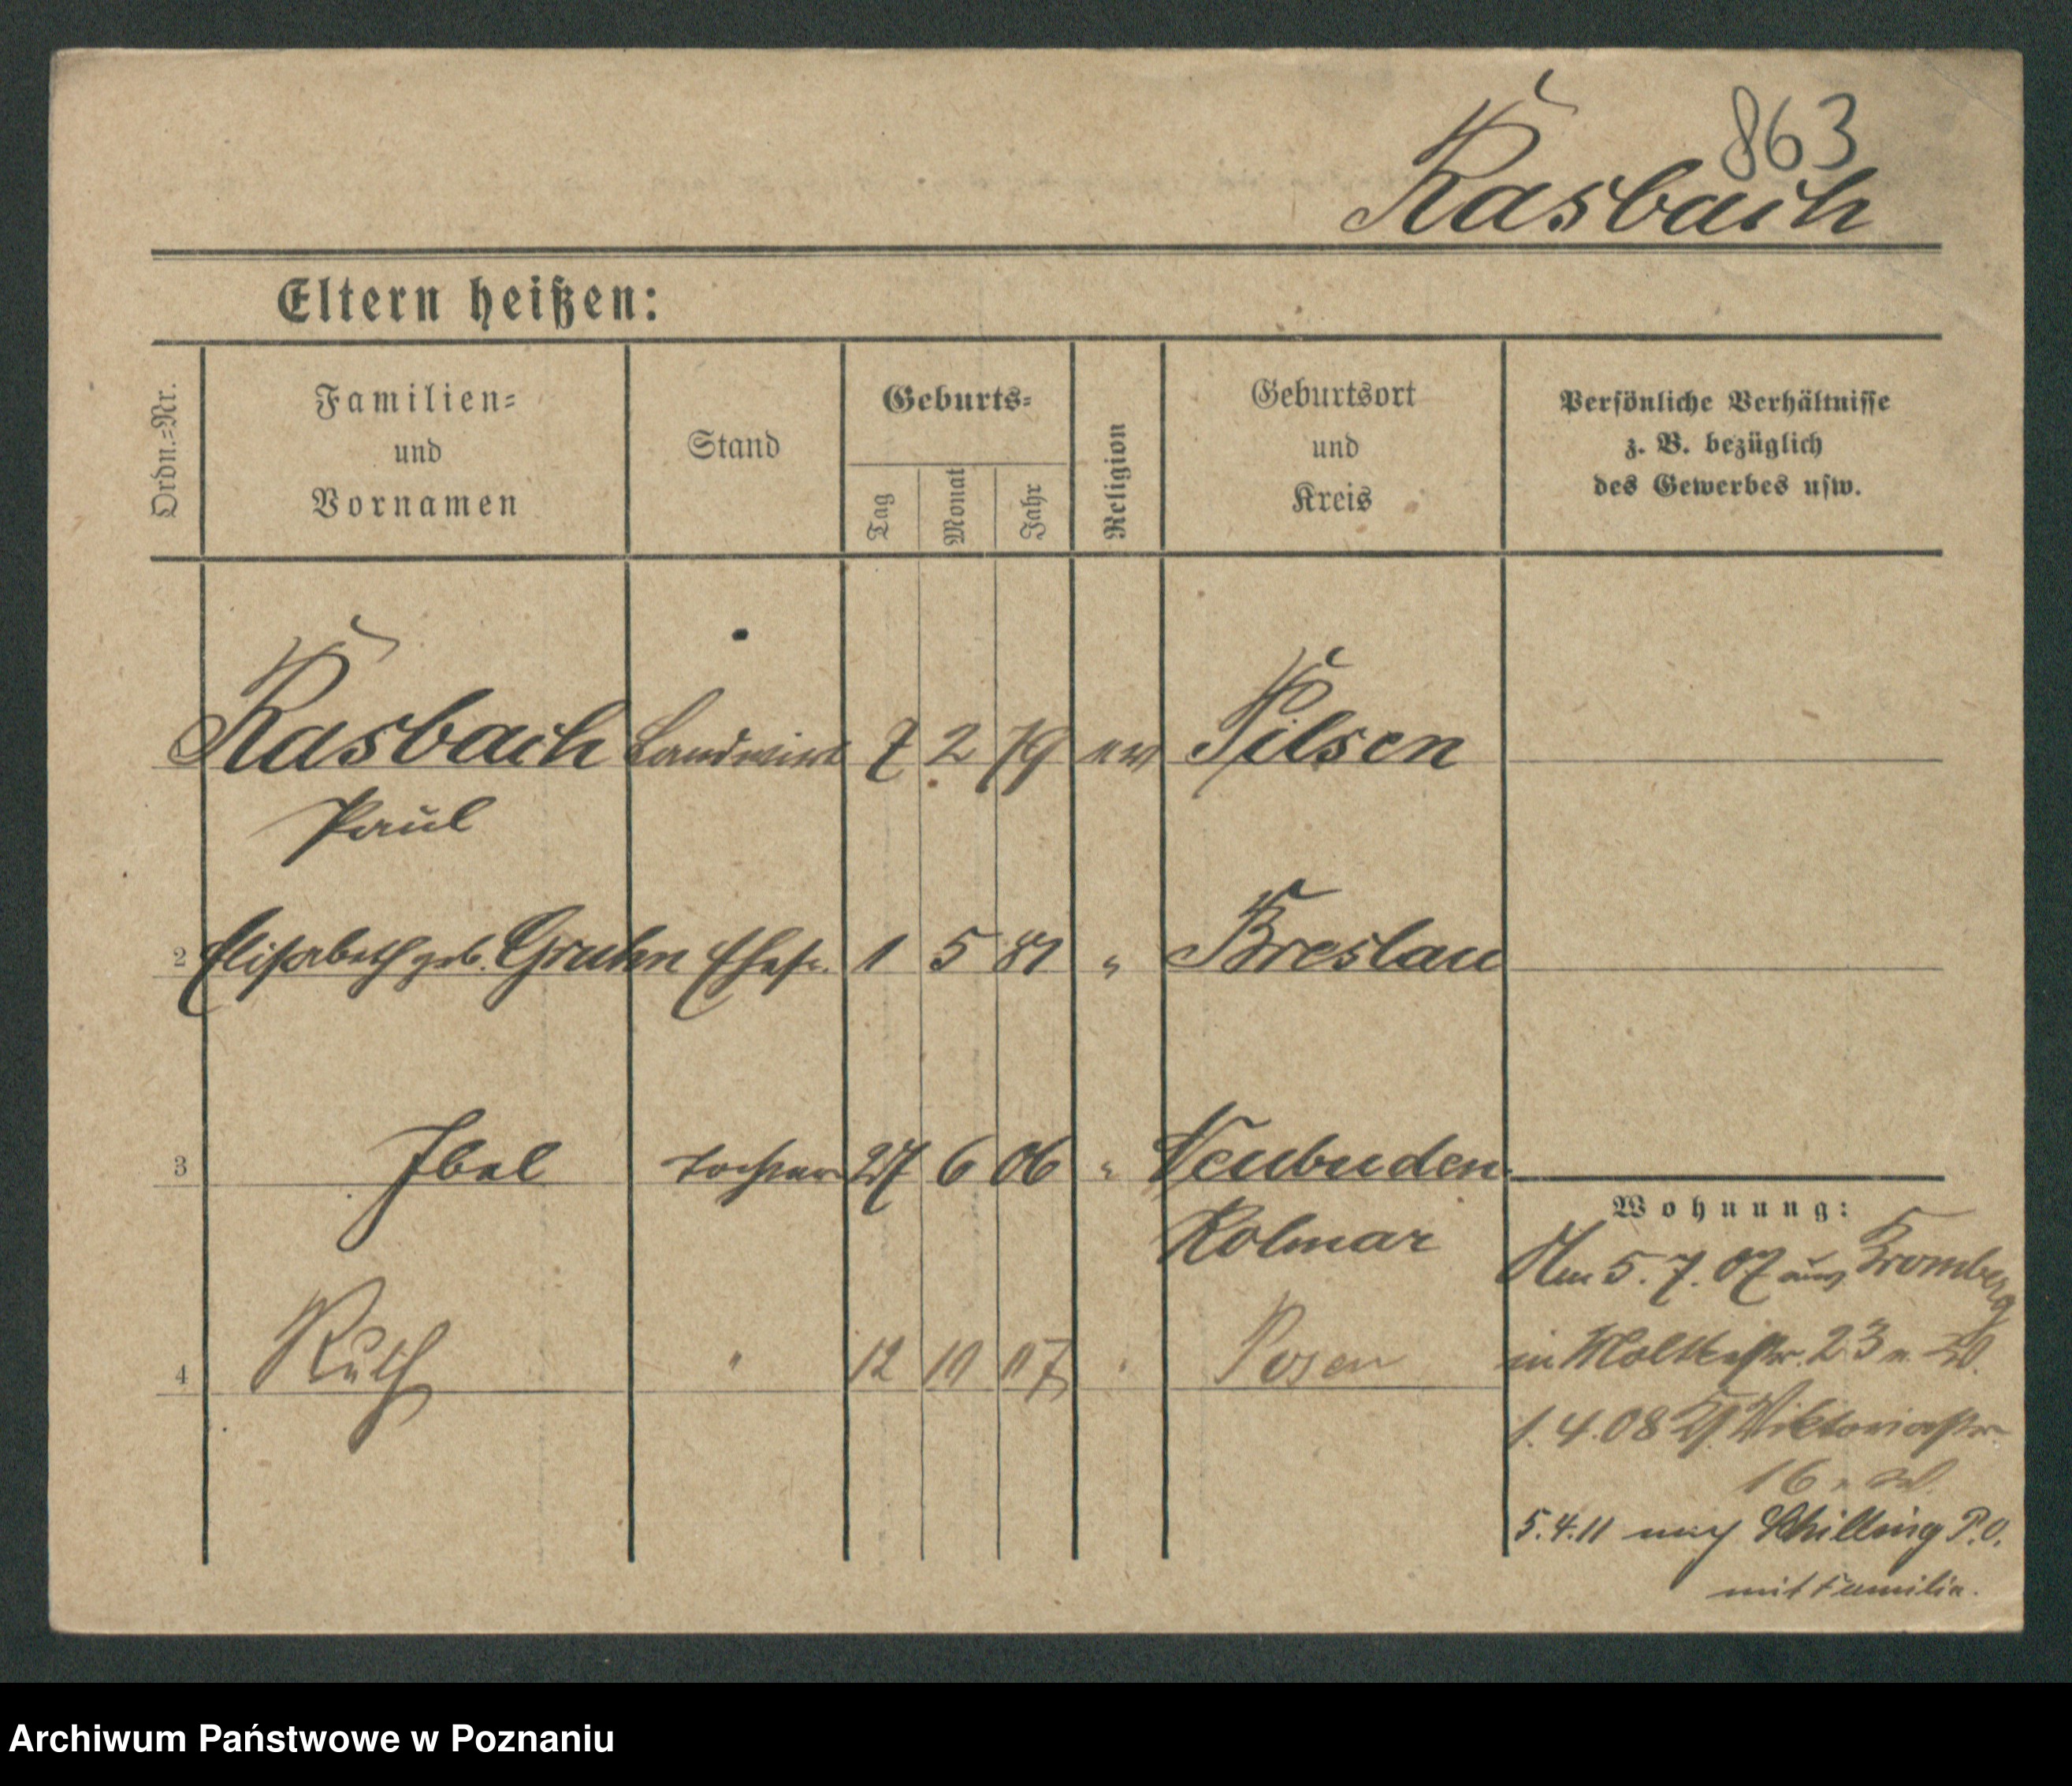 863
Rasbach
Eltern heißen:
Ordn.=Nr.
Familien=
und
Vornamen
Stand
Geburts=
Tag
Monat
Jahr
Religion
Geburtsort
und
Kreis
Persönliche Verhältnisse
z. B. bezüglich
des Gewerbes usw.
Rasbach Landwirt 7 2 79 ev Pilsen
Paul
2 Elisabeth geb. Gruhn Ehefr. 1 5 81 " Breslau
3 Isabel Tochter 27 6 06 " Neubuden
Kolmar
4 Ruth " 12 10 07 " Posen
Wohnung:
Am 5. 7. 07 aus Bromberg
in Moltkestr. 23 n. W.
1. 4. 08 Viktoriastr
16 n. W.
5. 4. 11 nach Schilling P. O.
mit Familie.
Archiwum Państwowe w Poznaniu